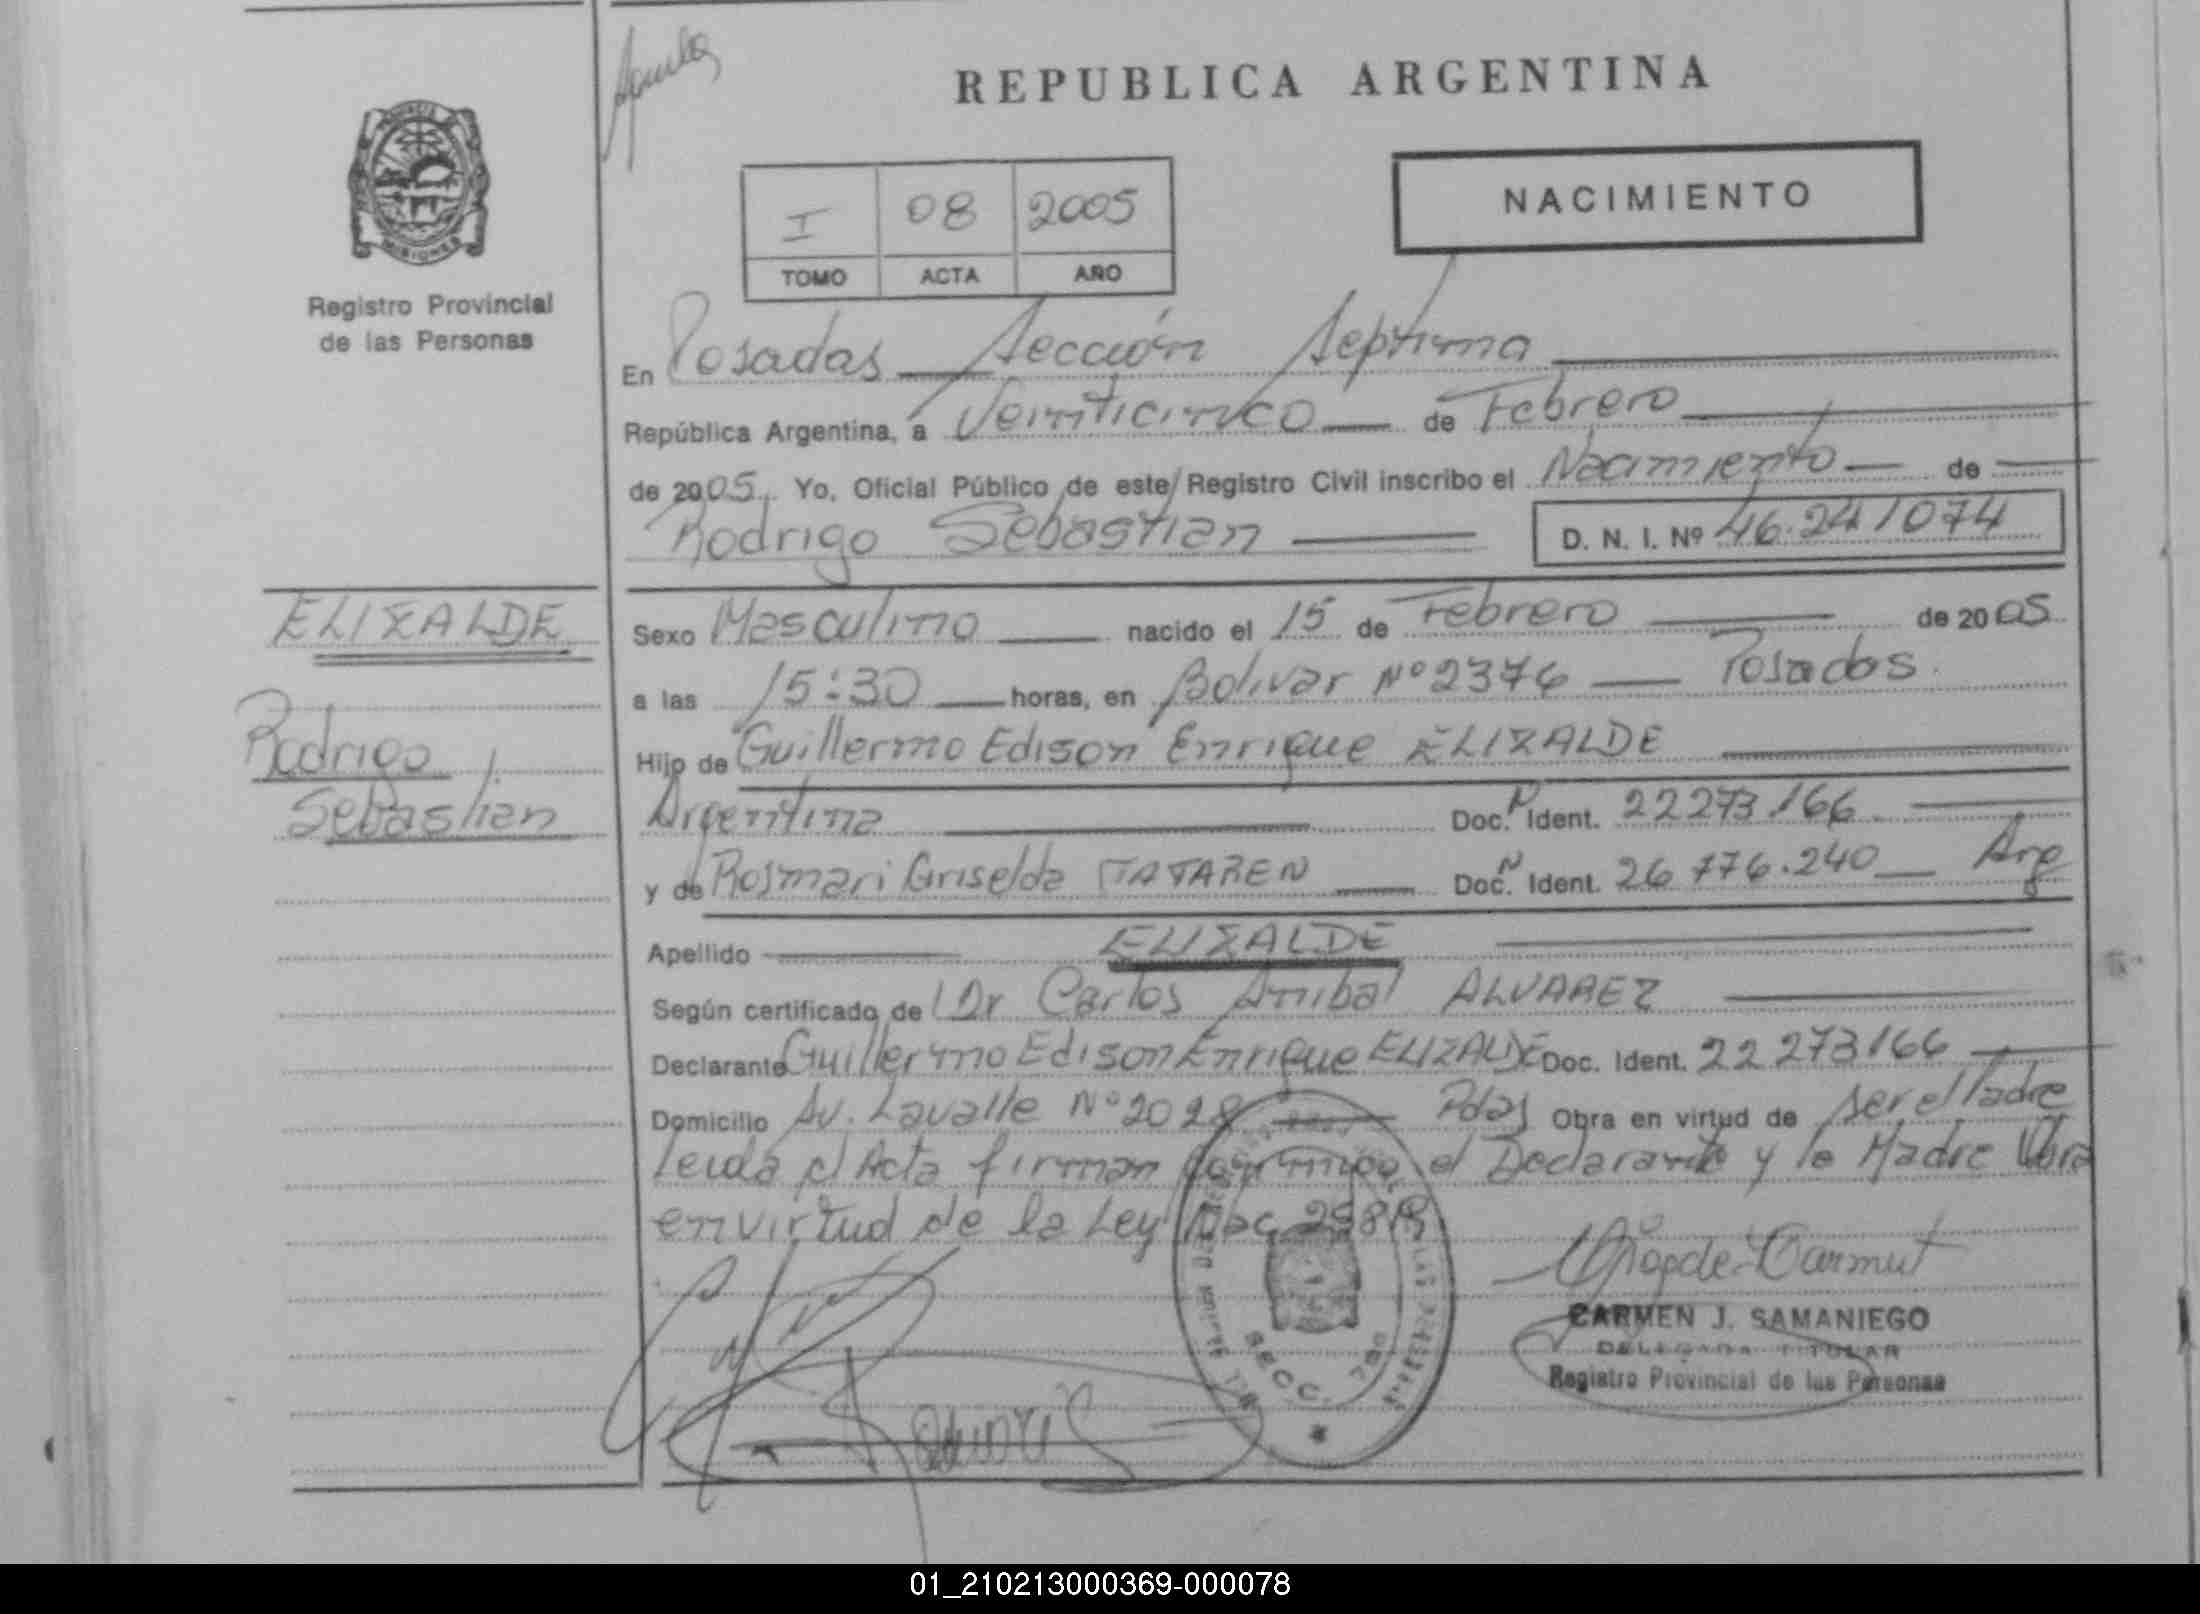 REPUBLICA ARGENTINA
PROVINCIA
MISIONES
Registro Provincial
de las Personas
NACIMIENTO
I 08 2005
TOMO ACTA AÑO
En Posadas Sección Septima
República Argentina, a Veinticinco de Febrero
de 2005. Yo, Oficial Público de este Registro Civil inscribo el Nacimiento de
Rodrigo Sebastian D. N. I. Nº 46.241074
ELIZALDE
Rodrigo
Sebastian
Sexo Masculino nacido el 15 de Febrero de 2005
a las 15:30 horas, en Bolivar Nº 2376 Posadas
Hijo de Guillermo Edison Enrique ELIZALDE
Argentina Doc. N Ident. 22273.166
y de Rosmari Griselda Doc. N Ident. 26 776.240 Arg
Apellido ELIZALDE
Según certificado de Dr Carlos Anibal ALVAREZ
Declarante Guillermo Edison Enrique ELIZALDE Doc. Ident. 22 273166
Domicilio Av. Lavalle Nº 2028 Pdas Obra en virtud de ser el Padre
Leida el Acta firman conmigo el Declarante y la Madre Obra
en virtud de la Ley Nac
SECC. 7
CARMEN J. SAMANIEGO
DELEGADA TITULAR
Registro Provincial de las Personas
01_210213000369-000078